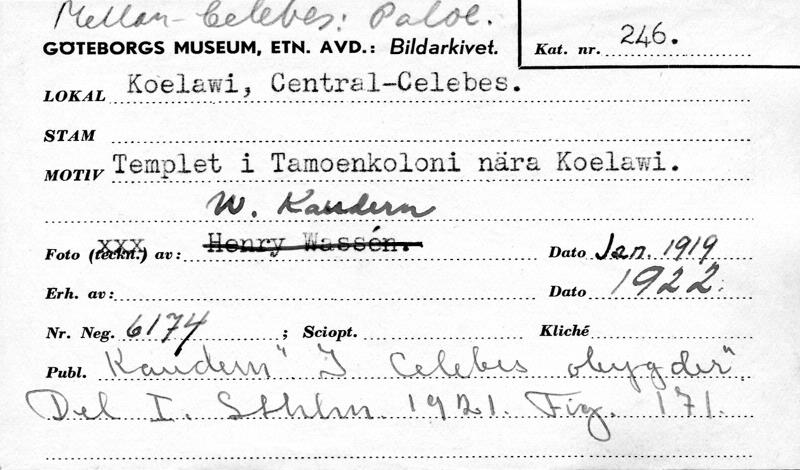 Mellan-Celebes: Paloe.
GÖTEBORGS MUSEUM, ETN. AVD.: Bildarkivet. Kat. nr. 246.
LOKAL Koelawi, Central-Celebes.
STAM
MOTIV Templet i Tamoenkoloni nära Koelawi.
W. Kaudern
Foto (teckn.) av: Henry Wassén. Dato Jan. 1919
Erh. av: Dato 1922.
Nr. Neg. 6174 ; Sciopt. Kliché
Publ. Kaudern "I Celebes obygder",
Del I. Sthlm. 1921. Fig. 171.